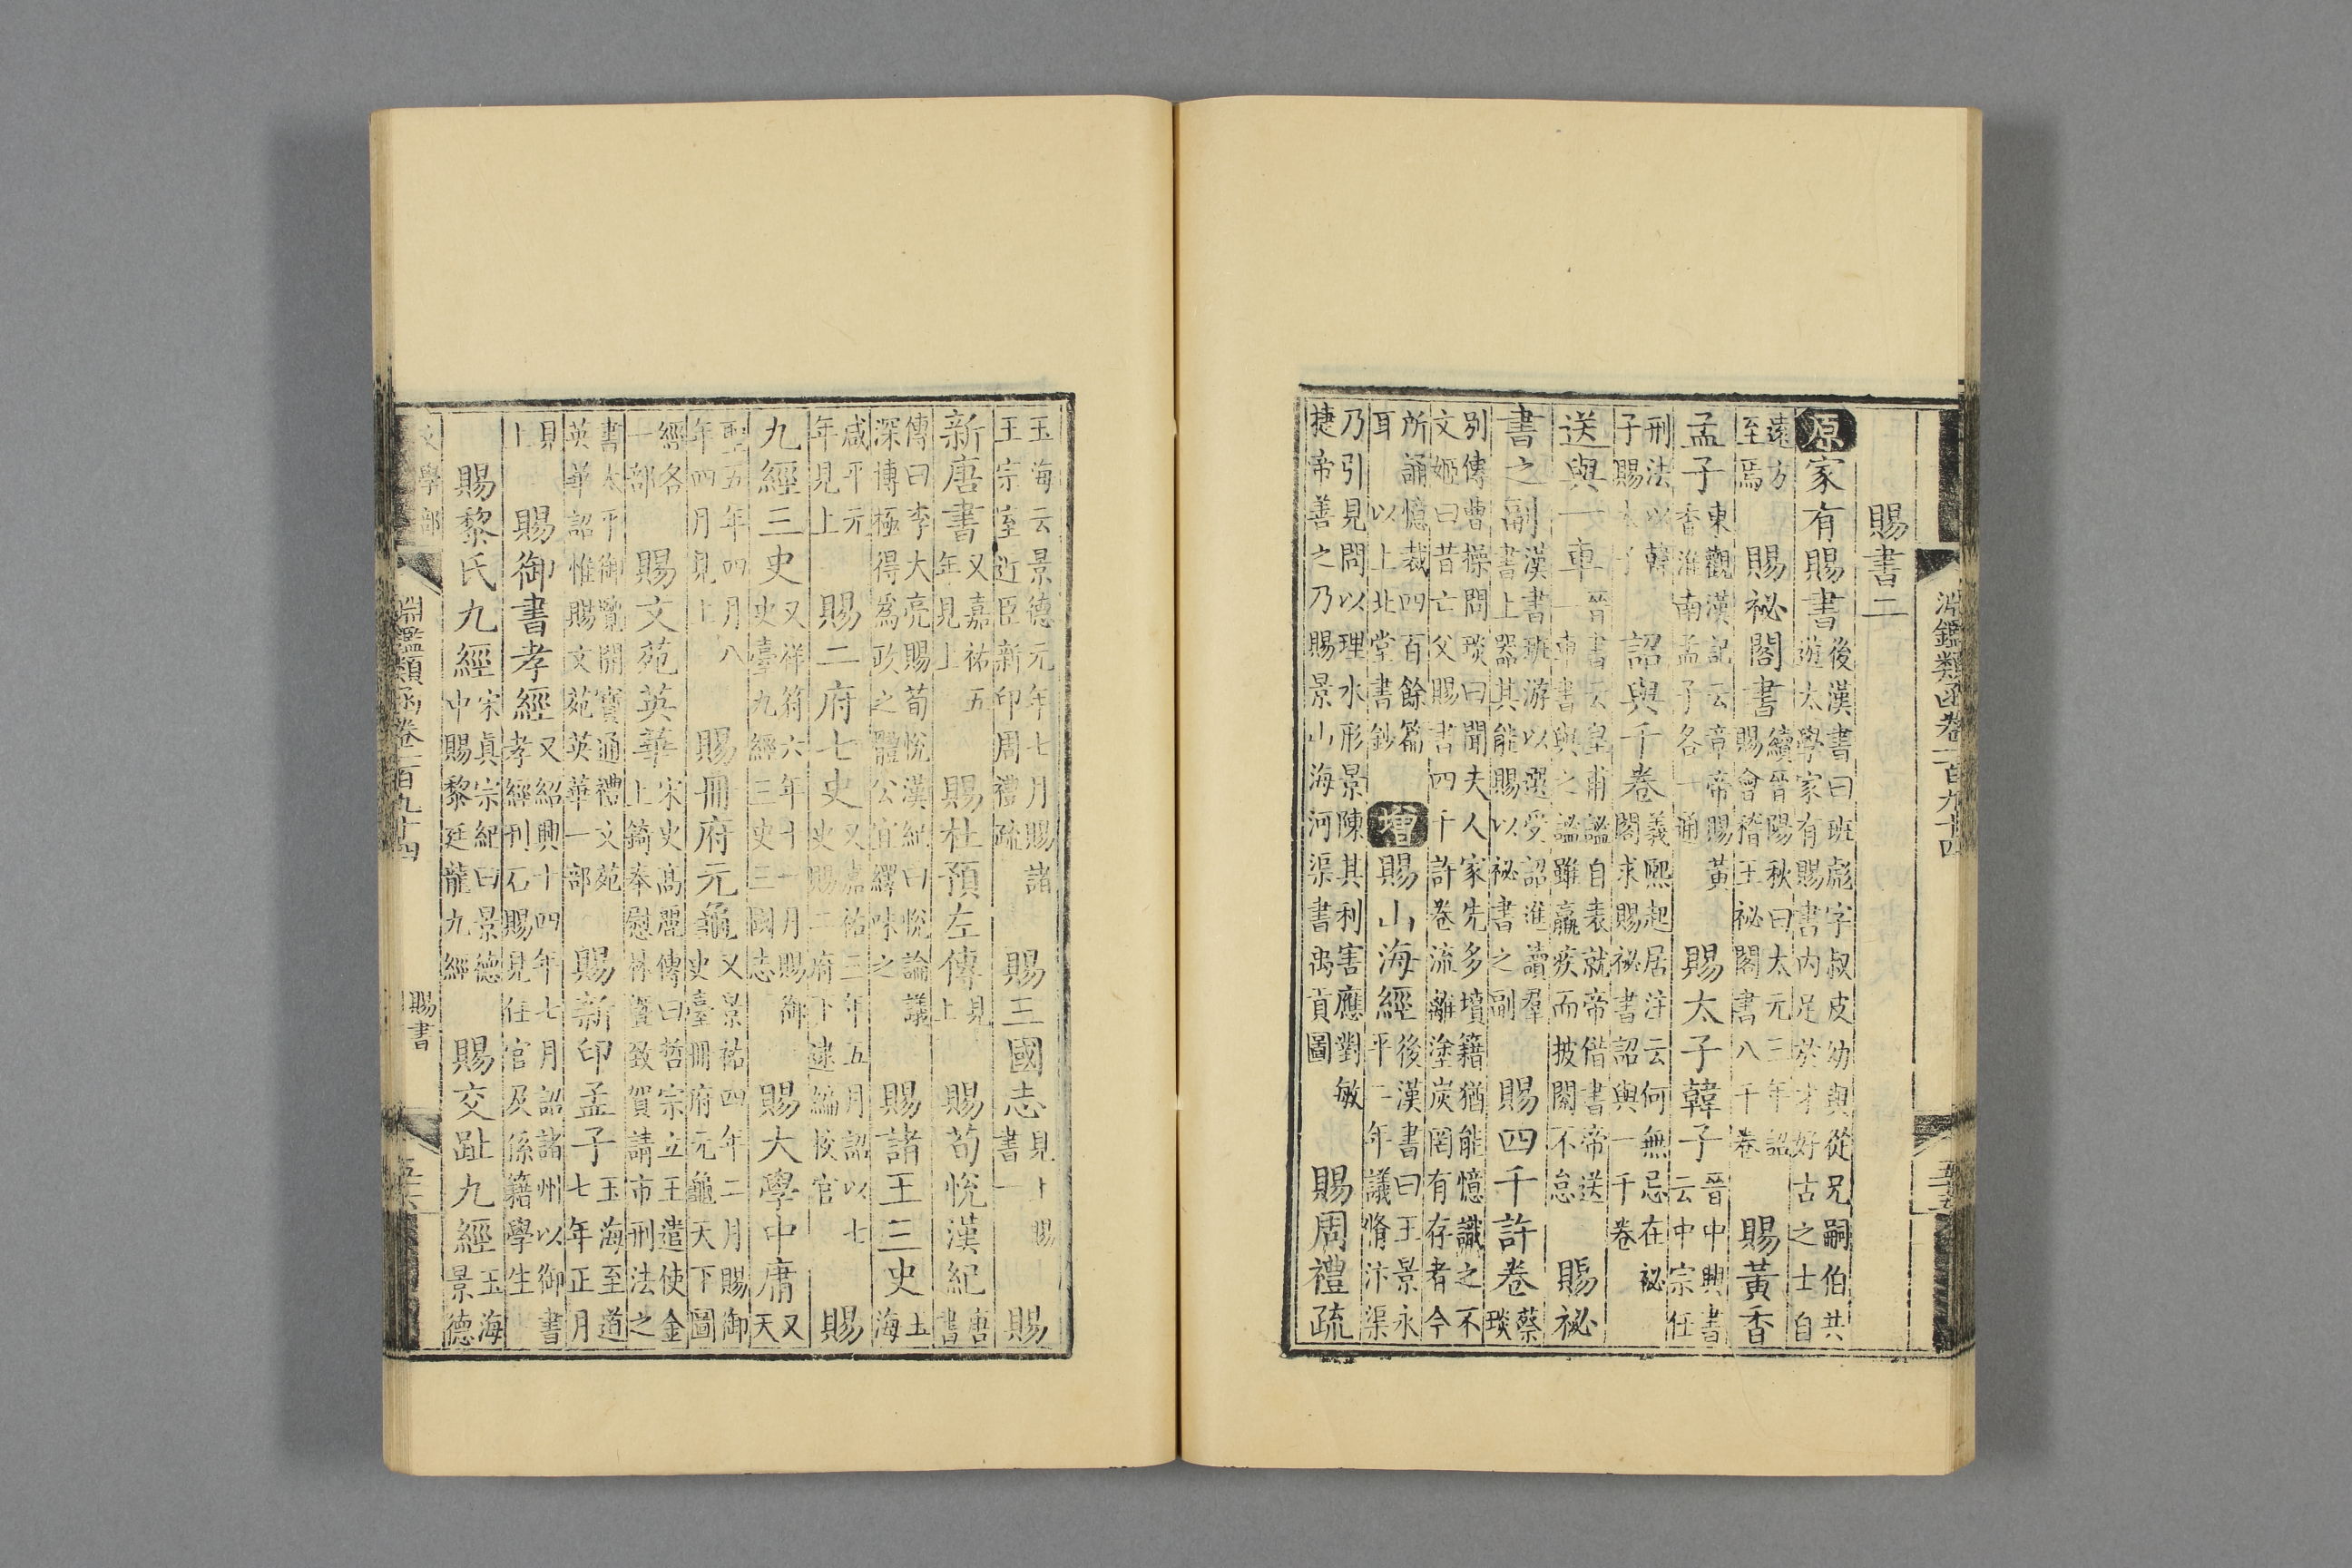 淵鑑類函卷二百九十四
賜書二
原家有賜書後漢書曰班彪字叔皮幼與從兄嗣伯共遊太學家有賜書内足於才好古之士自
遠方至焉賜祕閣書續晉陽秋曰太元三年詔賜會稽王祕閣書八千卷賜黃香
孟子東觀漢記云章帝賜黃香淮南孟子各一通賜太子韓子晉中興書云中宗任
刑法以韓子賜太子詔與千卷義熙起居注云何無忌在祕閣求賜祕書詔與一千卷
送與一車晉書云皇甫謐自表就帝借書帝送一車書與之謐雖羸疾而披閱不怠賜祕
書之副漢書班游以選受詔進讀羣書上器其能賜以祕書之副賜四千許卷蔡琰
別傳曹操問琰曰聞夫人家先多墳籍猶能憶識之不文姬曰昔亡父賜書四千許卷流離塗炭罔有存者今
所誦憶裁四百餘篇耳以上北堂書鈔增賜山海經後漢書曰王景永平二年議脩汴渠
乃引見問以理水形景陳其利害應對敏捷帝善之乃賜景山海河渠書禹貢圖賜周禮疏
玉海云景德元年七月賜諸王宗室近臣新印周禮疏賜三國志見上賜書一賜
新唐書又嘉祐五年見上賜杜預左傳見上賜荀悅漢紀唐書
傳曰李大亮賜荀悅漢紀曰悅論議深博極得爲政之體公宜繹味之賜諸王三史玉海
咸平元年見上賜二府七史又嘉祐三年五月詔以七史賜二府下逮編校官賜
九經三史又祥符六年十一月賜御史臺九經三史三國志賜大學中庸又天
聖五年四月八年四月見上賜冊府元龜又景祐四年二月賜御史臺冊府元龜天下圖
經各一部賜文苑英華宋史高麗傳曰哲宗立王遣使金上錡奉慰林曁致賀請市刑法之
書太平御覽開寶通禮文苑英華詔惟賜文苑英華一部賜新印孟子玉海至道七年正月
見上賜御書孝經又紹興十四年七月詔諸州以御書孝經刊石賜見任官及係籍學生
賜黎氏九經宋眞宗紀曰景德中賜黎廷龍九經賜交趾九經玉海景德
文學部
淵鑑類函卷二百九十四
賜書